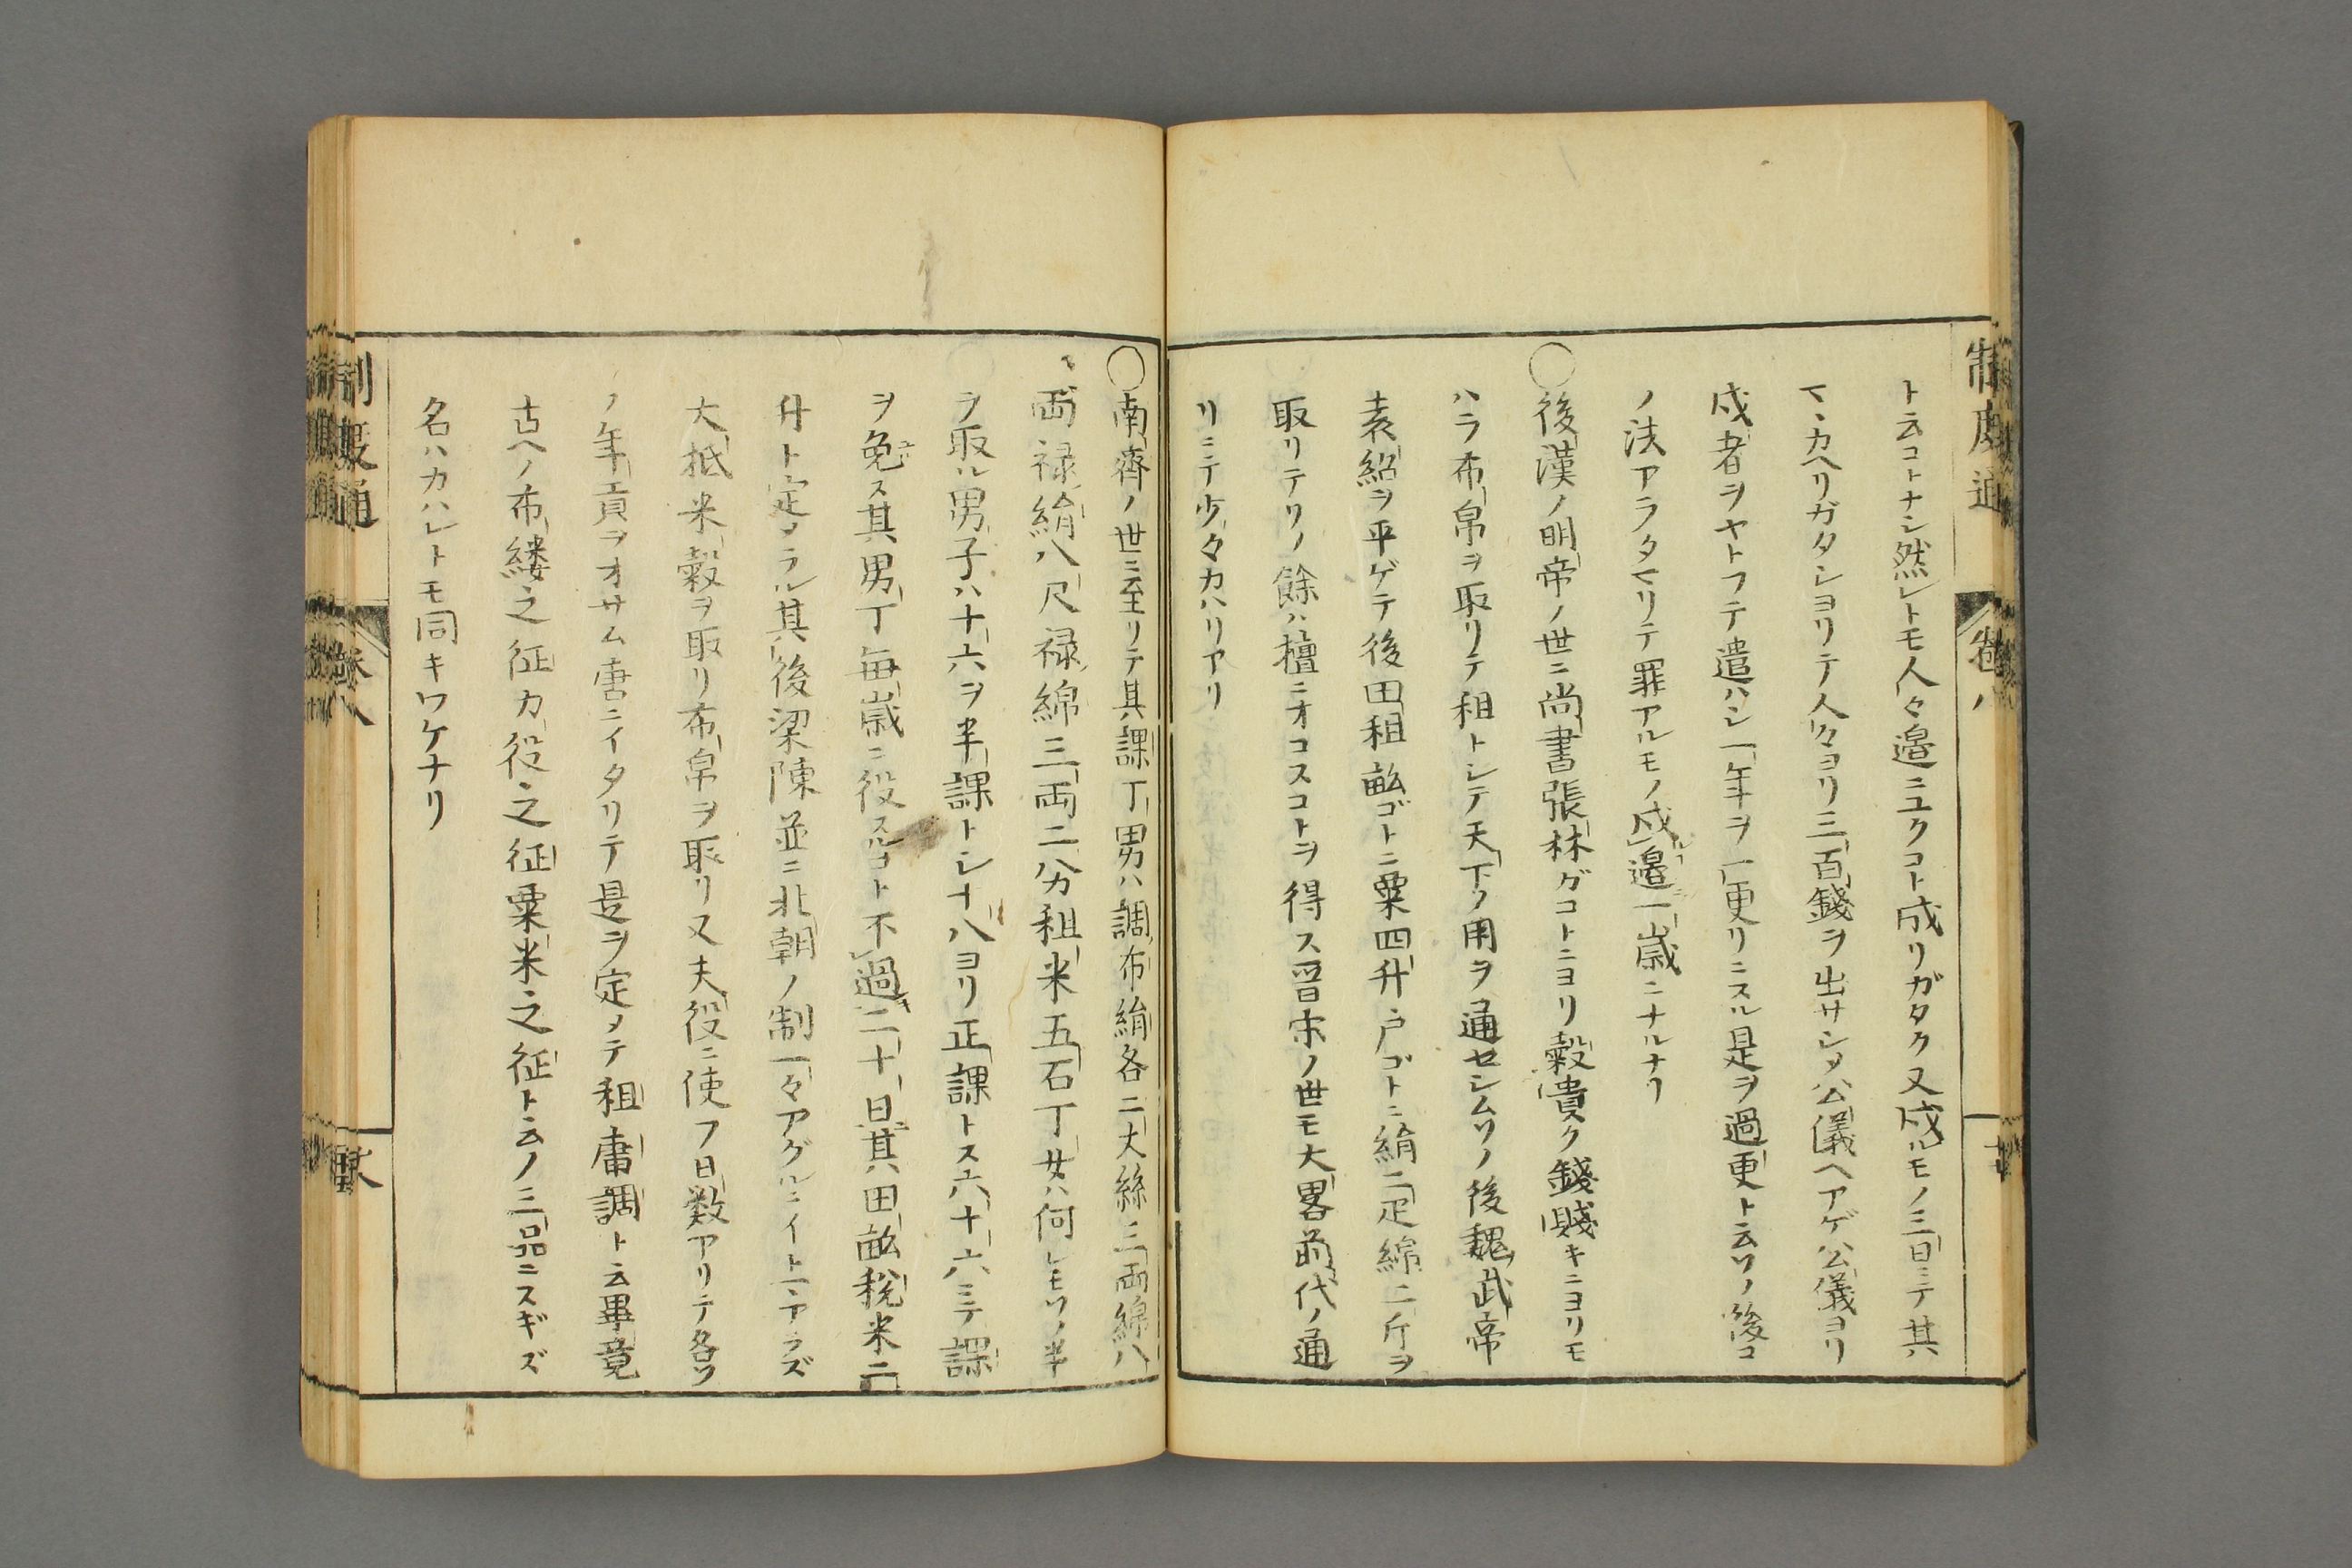 制度通 巻八
ト云コトナシ然レトモ人々邉ニユクコト成リガタク又戍ルモノ三日ニテ其
マヽカヘリガタシヨリテ人々ヨリ三百錢ヲ出サシメ公儀ヘアゲ公儀ヨリ
戍者ヲヤトフテ遣ハシ一年ヲ一更リニスル是ヲ過更ト云ソノ後コ
ノ法アラタマリテ罪アルモノ戍邉一歳ニナルナリ
○後漢ノ明帝ノ世ニ尚書張林ガコトニヨリ穀貴ク錢賤キニヨリモ
ハラ布帛ヲ取リテ租トシテ天下ノ用ヲ通セシムソノ後魏武帝
袁紹ヲ平ゲテ後田租畆ゴトニ粟四升戸ゴトニ絹二疋綿二斤ヲ
取リテソノ餘ハ檀ニオコスコトヲ得ス晉宋ノ世モ大畧前代ノ通
リニテ少々カハリアリ
○南齊ノ世ニ至リテ其課丁男ハ調布絹各二丈絲三両綿八
両禄絹八尺禄綿三両二分カ租米五石丁女ハ何レモソノ半
ヲ取ル男子ハ十六ヲ半課トシ十八ヨリ正課トス六十六ニテ課
ヲ免ス其男丁毎歳ニ役スルコト不過二十日其田畆税米二
升ト定メラル其後梁陳並ニ北朝ノ制一々アグルニイトマアラズ
大抵米穀ヲ取リ布帛ヲ取リ又夫役ニ使フ日数アリテ各ソ
ノ年貢ヲオサム唐ニイタリテ是ヲ定メテ租庸調ト云畢竟
古ヘノ布縷之征力役之征粟米之征ト云ノ三品ニスギズ
名ハカハレトモ同キワケナリ
制度通 巻八